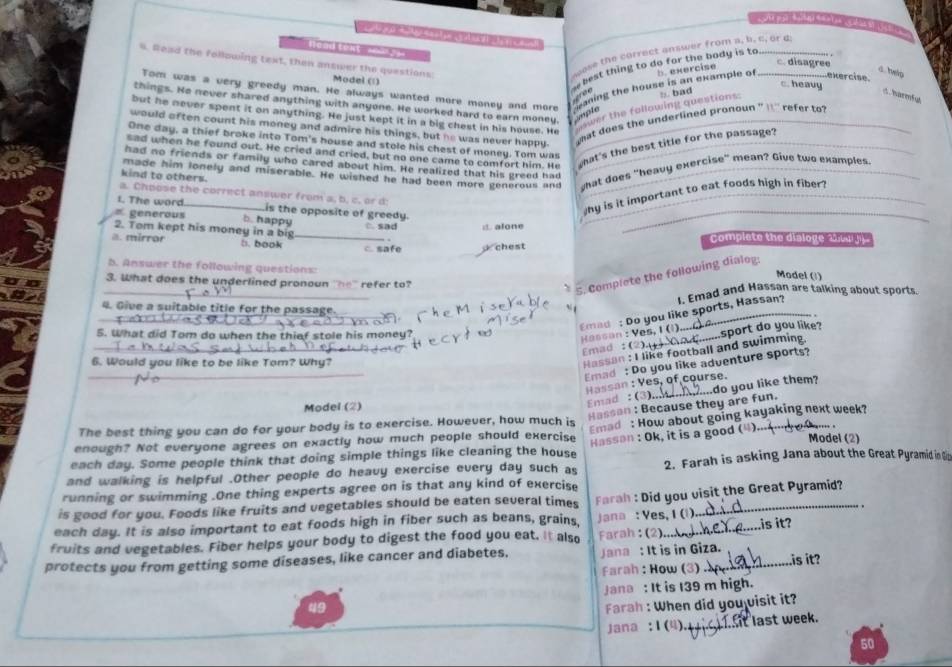 Read text
4. Read the following text, then answer the questions:
Model (1)
Tom was a very greedy man. He always wanted more money and more
things. He never shared anything with anyone. He worked hard to earn money,
but he never spent it on anything. He just kept it in a big chest in his house. He
would often count his money and admire his things, but he was never happy.
One day, a thief broke into Tom's house and stole his chest of money. Tom was
sad when he found out. He cried and cried, but no one came to comfort him. He
had no friends or family who cared about him. He realized that his greed had
made him lonely and miserable. He wished he had been more generous and
kind to others.
a. Choose the correct answer from a, b, c, or d:
1. The word is the opposite of greedy.
a. generous b. happy c. sad d. alone
2. Tom kept his money in a big .
a. mirror b. book c. safe d. chest
b. Answer the following questions:
3. What does the underlined pronoun "he" refer to?
Tom
4. Give a suitable title for the passage.
The Miserable
5. What did Tom do when the thief stole his money?
6. Would you like to be like Tom? Why?
No
Model (2)
The best thing you can do for your body is to exercise. However, how much is
enough? Not everyone agrees on exactly how much people should exercise
each day. Some people think that doing simple things like cleaning the house
and walking is helpful .Other people do heavy exercise every day such as
running or swimming .One thing experts agree on is that any kind of exercise
is good for you. Foods like fruits and vegetables should be eaten several times
each day. It is also important to eat foods high in fiber such as beans, grains,
fruits and vegetables. Fiber helps your body to digest the food you eat. It also
protects you from getting some diseases, like cancer and diabetes.
49
the correct answer from a, b, c, or d:
best thing to do for the body is to .
b. exercise c. disagree d. help
the house is an example of exercise.
b. bad c. heavy d. harmful
the following questions:
does the underlined pronoun " It" refer to?
what's the best title for the passage?
what does "heavy exercise" mean? Give two examples.
why is it important to eat foods high in fiber?
Complete the dialoge
5. Complete the following dialog:
Model (1)
1. Emad and Hassan are talking about sports.
Emad : Do you like sports, Hassan?
Hassan : Yes, I (1) do .
Emad : (2) what sport do you like?
Hassan : I like football and swimming.
Emad : Do you like adventure sports?
Hassan : Yes, of course.
Emad : (3) why do you like them?
Hassan : Because they are fun.
Emad : How about going kayaking next week?
Hassan : Ok, it is a good (4) idea .
Model (2)
2. Farah is asking Jana about the Great Pyramid in
Farah : Did you visit the Great Pyramid?
Jana : Yes, I (1) did .
Farah : (2) where is it?
Jana : It is in Giza.
Farah : How (3) high is it?
Jana : It is 139 m high.
Farah : When did you visit it?
Jana : I (4) visited it last week.
50